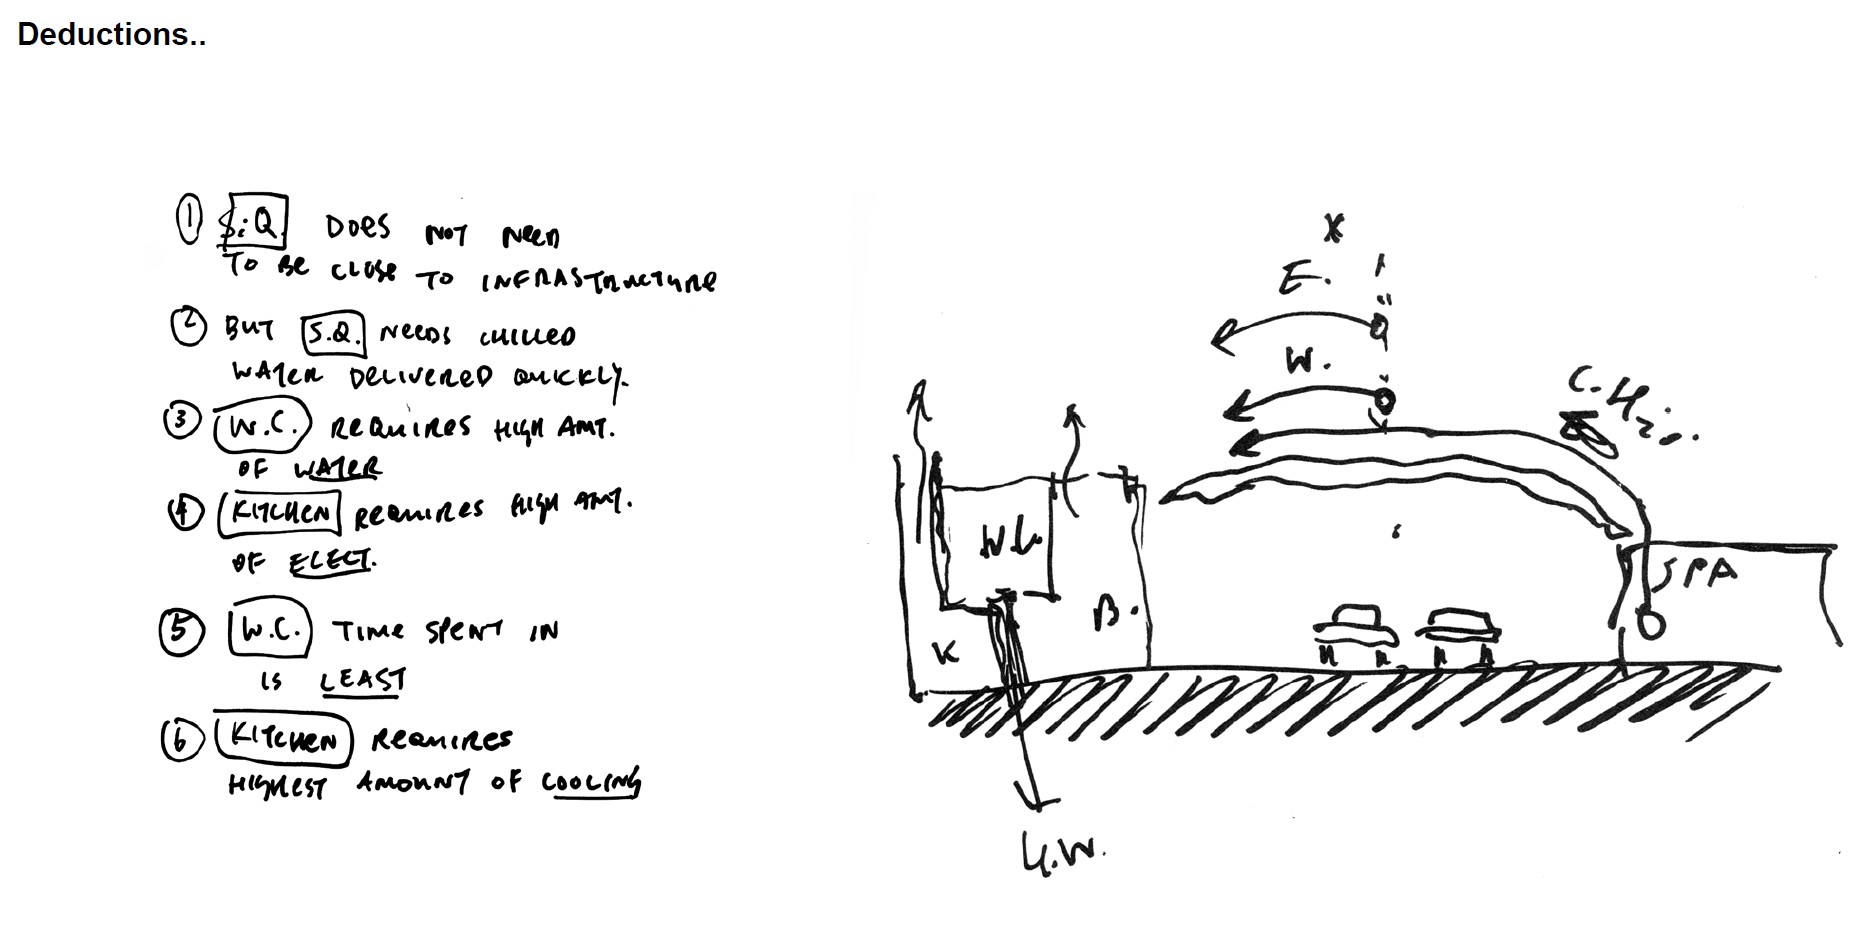 Deductions..
① S.Q. DOES NOT NEED
TO BE CLOSE TO INFRASTRUCTURE
② BUT S.Q. NEEDS CHILLED
WATER DELIVERED QUICKLY.
③ W.C. REQUIRES HIGH AMT.
OF WATER
④ KITCHEN REQUIRES HIGH AMT.
OF ELECT.
⑤ W.C. TIME SPENT IN
IS LEAST
⑥ KITCHEN REQUIRES
HIGHEST AMOUNT OF COOLING
E.
W.
W.C.
B.
K
SPA
G.W.